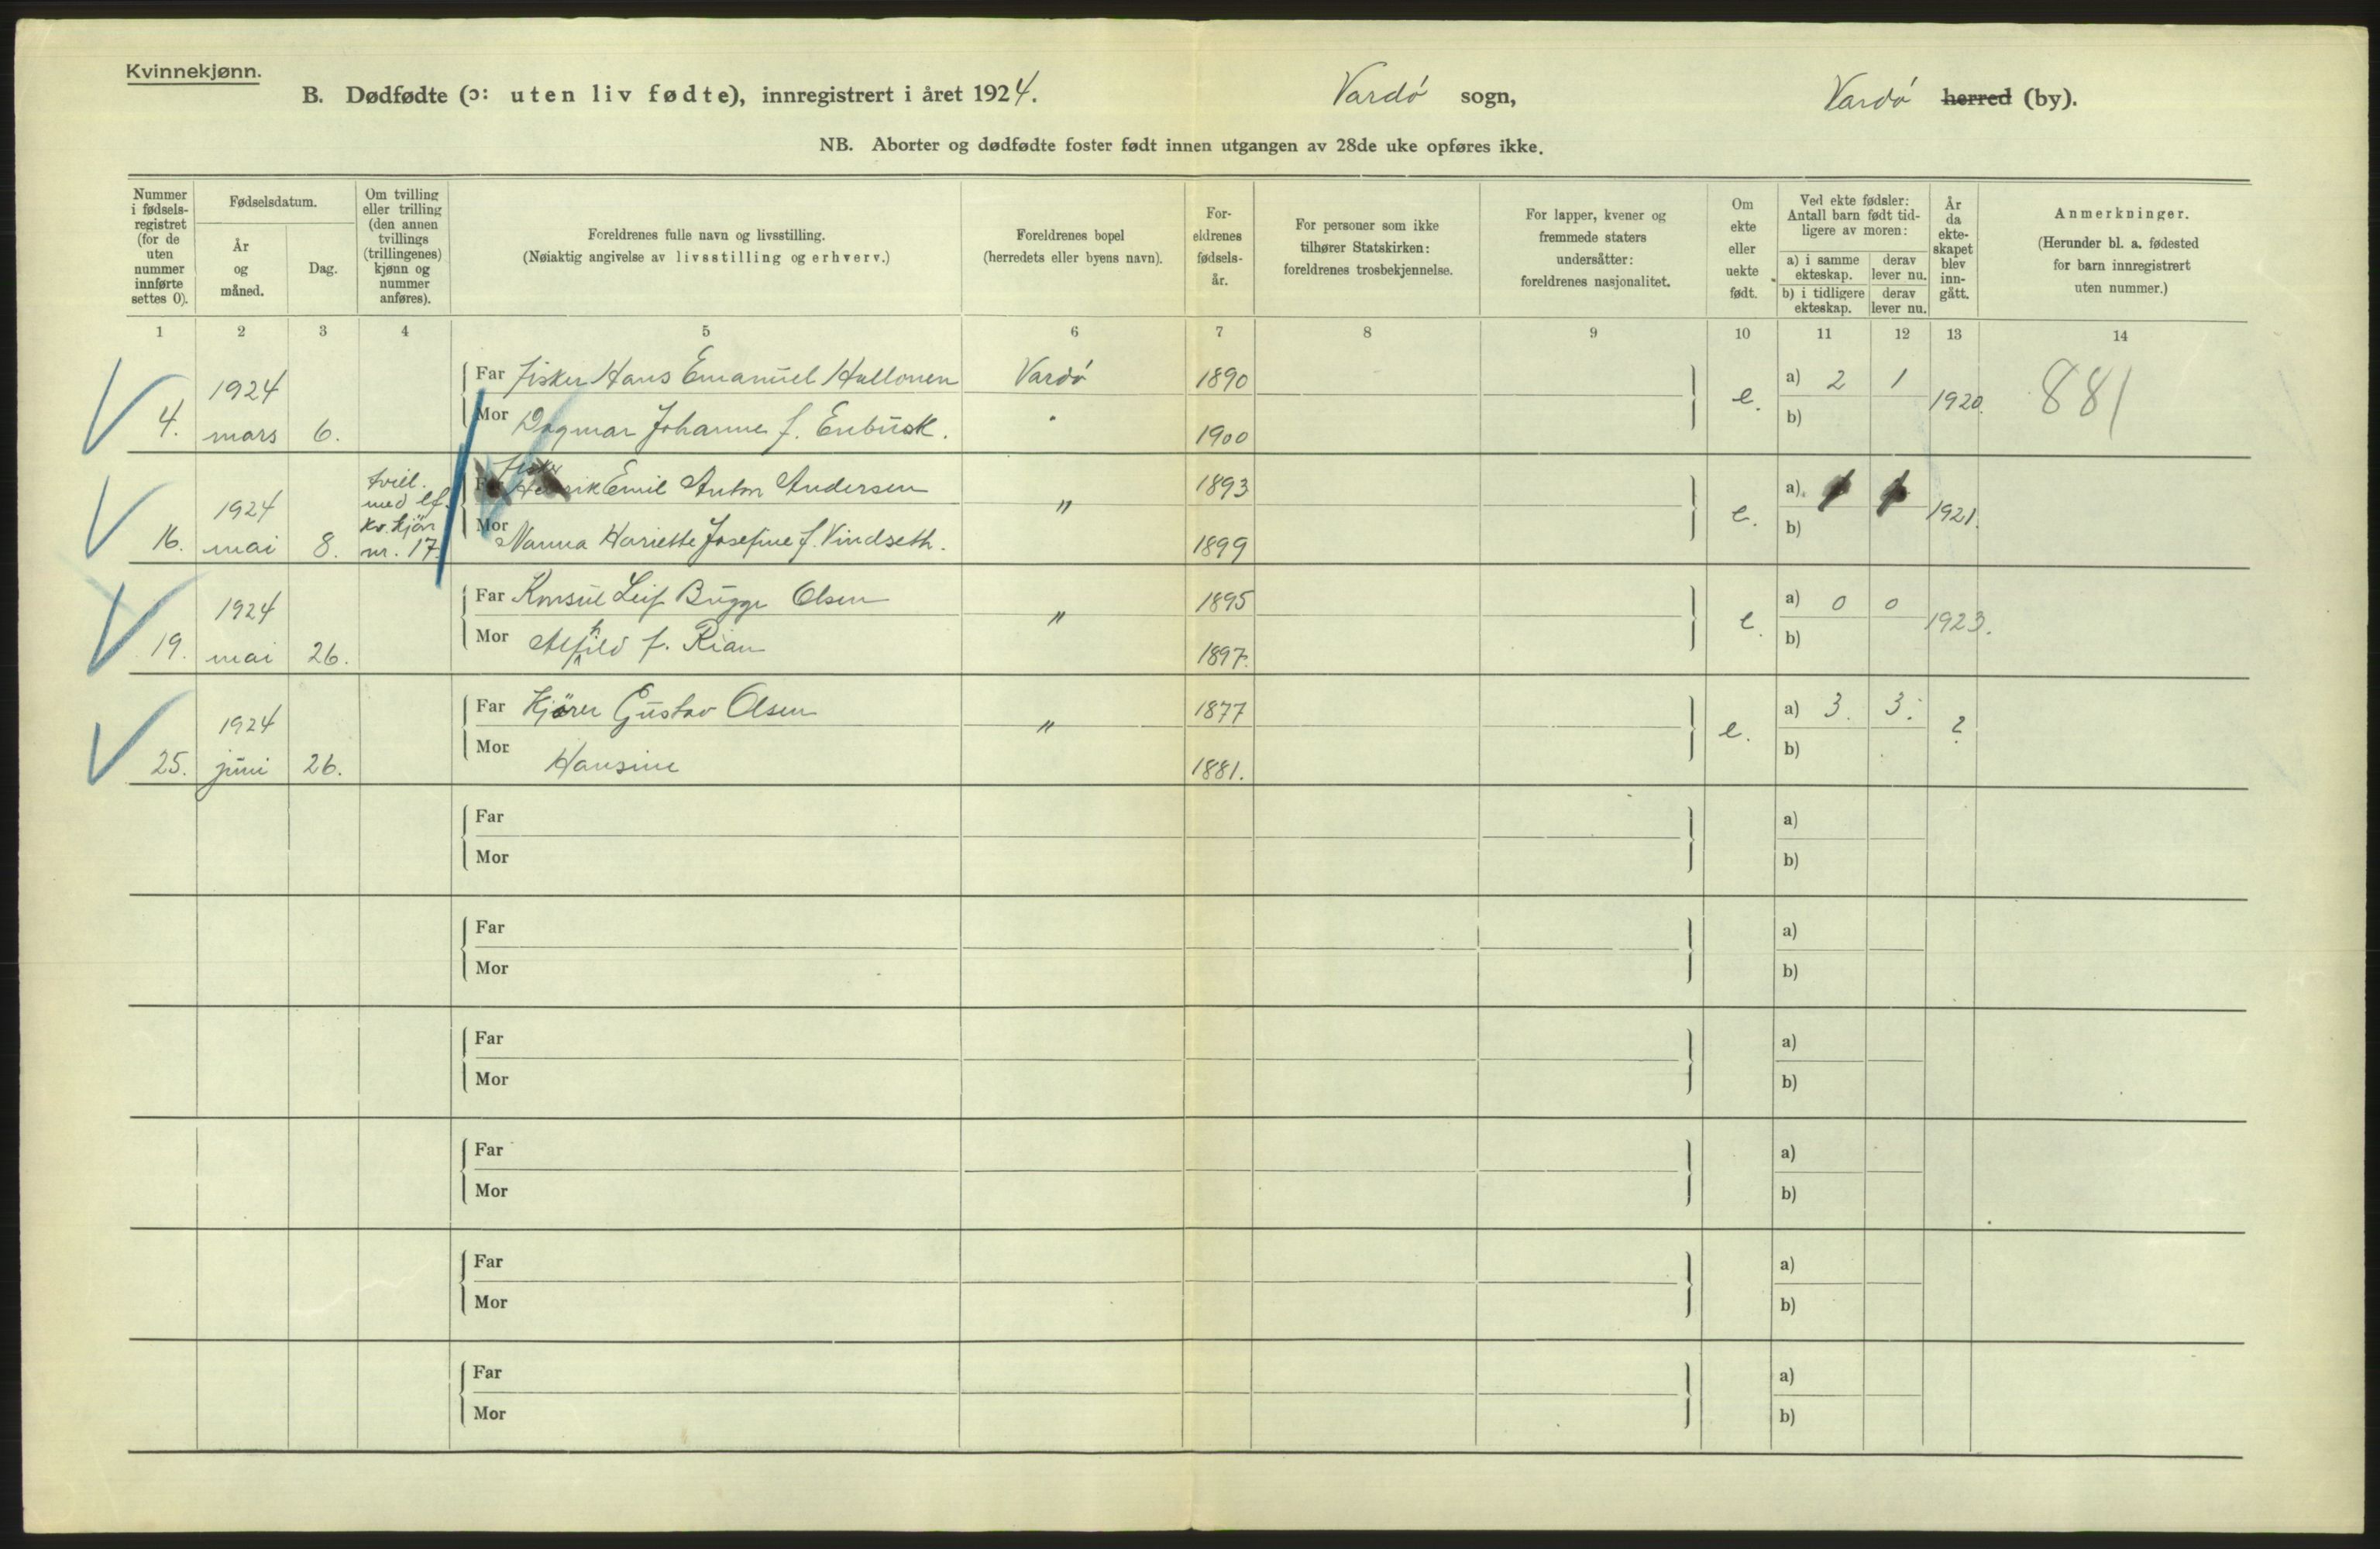 Kvinnekjønn.
B. Dødfødte (ɔ: uten liv fødte), innregistrert i året 1924. Vardø sogn, Vardø herred (by).
NB. Aborter og dødfødte foster født innen utgangen av 28de uke opføres ikke.
Nummer i fødselsregistret (for de uten nummer innførte settes 0).
Fødselsdatum.
År og måned.
Dag.
Om tvilling eller trilling (den annen tvillings (trillingenes) kjønn og nummer anføres).
Foreldrenes fulle navn og livsstilling.
(Nøiaktig angivelse av livsstilling og erhverv.)
Foreldrenes bopel
(herredets eller byens navn).
Foreldrenes fødselsår.
For personer som ikke tilhører Statskirken: foreldrenes trosbekjennelse.
For lapper, kvener og fremmede staters undersåtter: foreldrenes nasjonalitet.
Om ekte eller uekte født.
Ved ekte fødsler: Antall barn født tidligere av moren:
a) i samme ekteskap. derav lever nu.
b) i tidligere ekteskap. derav lever nu.
År da ekteskapet blev inngått.
Anmerkninger.
(Herunder bl. a. fødested for barn innregistrert uten nummer.)
1 2 3 4 5 6 7 8 9 10 11 12 13 14
1924 Far Fisker Hans Emanuel Hallonen Vardø 1890 a) 2 1
4. mars 6. Mor Dagmar Johanne f. Enbusk. 1900 e. b) 1920. 881
tvill. Fisker
1924 med lf. Far Henrik Emil Anton Andersen " 1893 a)
16. mai 8. kv. kjøn nr. 17. Mor Nanna Hariette Josefine f. Vindseth. 1899 e. b) 1921.
1924 Far Konsul Leif Bugge Olsen " 1895 a) 0 0
19. mai 26. Mor Alfhild f. Rian 1897. e. b) 1923.
1924 Far Kjører Gustav Olsen " 1877 a) 3. 3.
25. juni 26. Mor Hansine 1881. e. b) ?
Far a)
Mor b)
Far a)
Mor b)
Far a)
Mor b)
Far a)
Mor b)
Far a)
Mor b)
Far a)
Mor b)